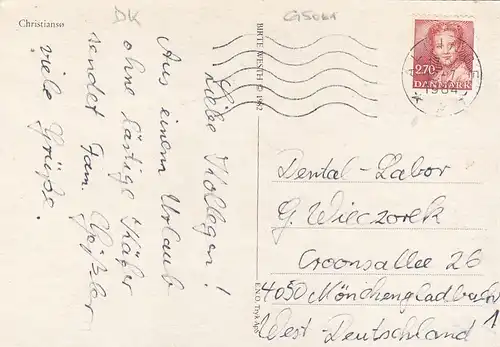 Christiansø
DK
G5061
BIRTE WEETH © 1982
E.N.O. Tryk Aps
2.70
DANMARK
1984
Liebe Kollegen!
Aus einem Urlaub
ohne lästige Käfer
sendet Fam. Geißler
viele Grüße.
Dental-Labor
G. Wieczorek
Croonsallee 26
4050 Mönchengladbach
1
West-Deutschland